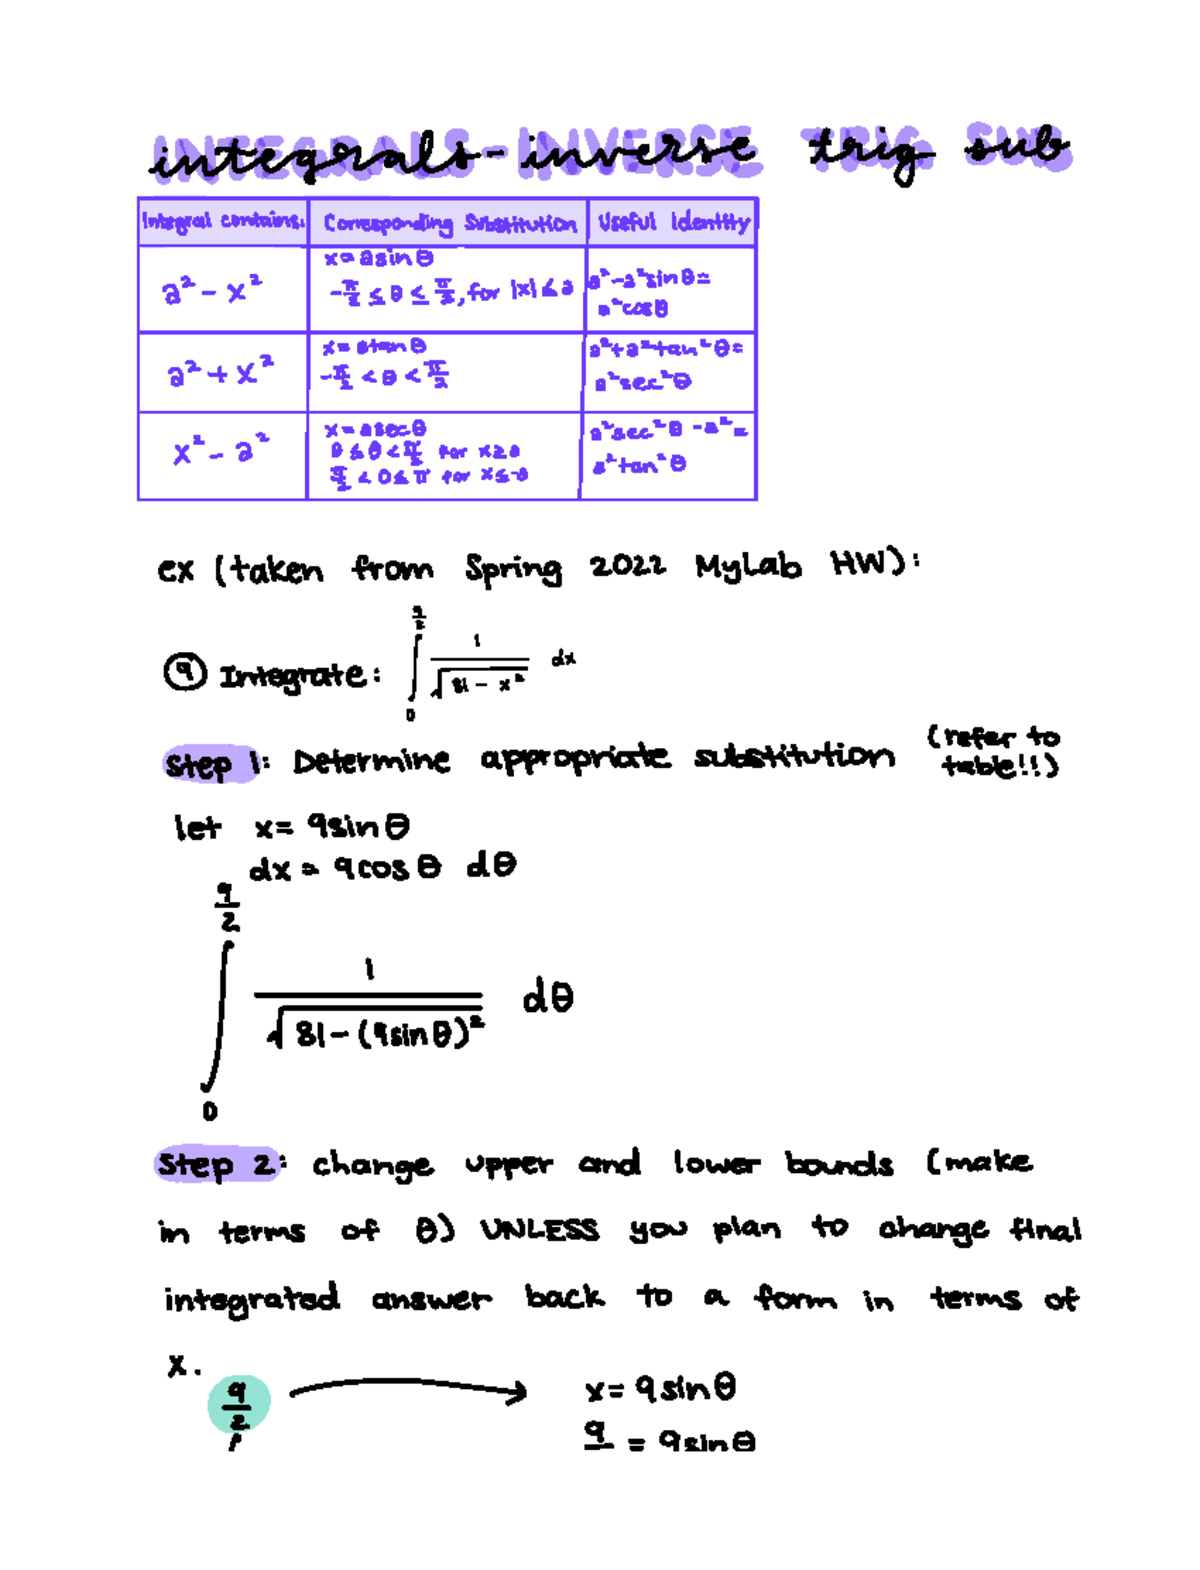 integrals-inverse trig sub
Integral contains: Corresponding Substitution Useful Identity
a² - x² x = asinθ -π/2 ≤ θ ≤ π/2, for |x| ≤ a a²-a²sinθ = a²cosθ
a² + x² x = atanθ -π/2 < θ < π/2 a²+a²tan²θ = a²sec²θ
x² - a² x = asecθ 0 ≤ θ < π/2 for x≥a π/2 < θ ≤ π for x≤-a a²sec²θ - a² = a²tan²θ
ex (taken from Spring 2022 MyLab HW):
⑨ Integrate: ∫₀^(9/2) 1/√(81 - x²) dx
Step 1: Determine appropriate substitution (refer to table!!)
let x = 9sinθ
dx = 9cosθ dθ
∫₀^(9/2) 1/√(81-(9sinθ)²) dθ
Step 2: change upper and lower bounds (make
in terms of θ) UNLESS you plan to change final
integrated answer back to a form in terms of
x.
9/2 → x = 9sinθ
9 = 9sinθ